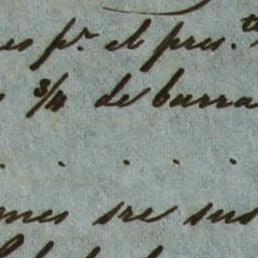 es pr. el pres.te
3/4 de barra
mes sre sus